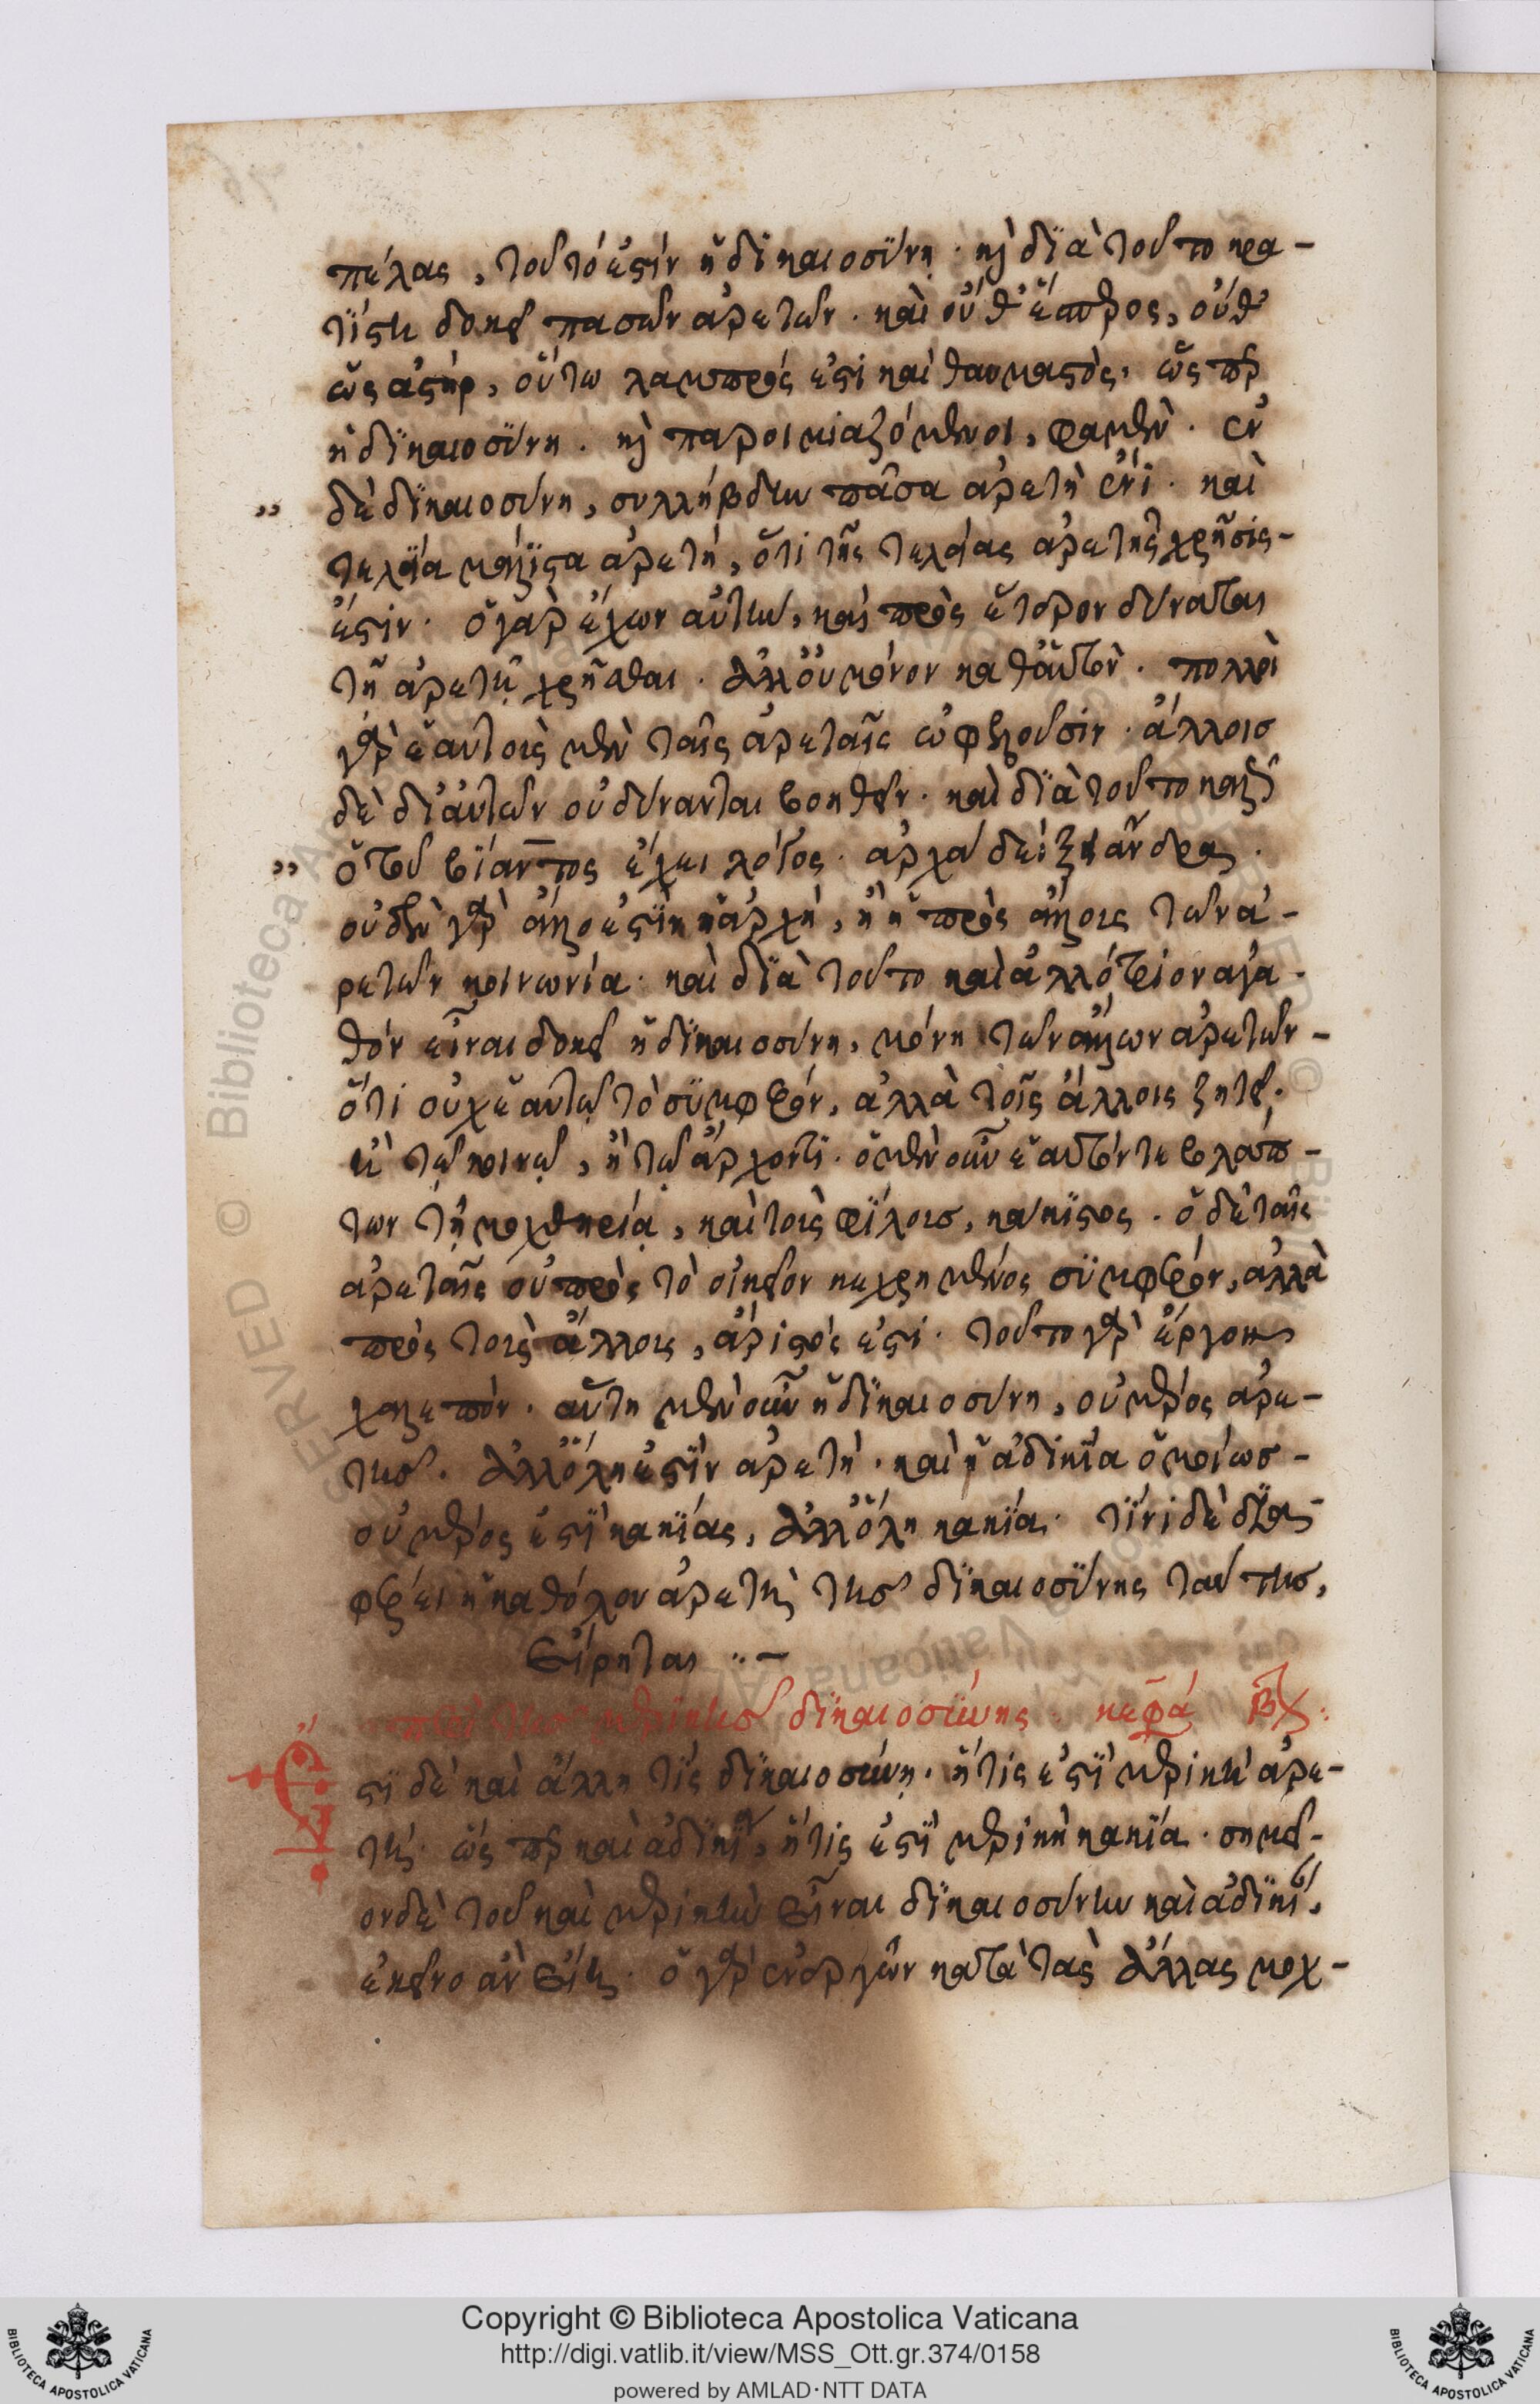 πέλας, τοῦτό ἐστιν ἡ δϊκαιοσΰνη· καὶ δϊὰ τοῦτο κρα-
τΐστη δοκεῖ πασῶν ἀρετῶν· καὶ οὔθ' ἕσπερος, οὔθ'
ὡς ἀστήρ, οὕτω λαμπρός ἐστι καὶ θαυμαστὸς, ὥσπερ
ἡ δϊκαιοσΰνη. καὶ παροιμιαζόμενοι, φαμὲν. ἐν
„ δὲ δϊκαιοσύνη, συλλήβδην πᾶσα ἀρετὴ ἐνι· καὶ
τελεία μάλϊστα ἀρετή, ὅτι τῆς τελείας ἀρετῆς χρῆσίς-
ἐστιν· ὁ γὰρ ἔχων αὐτὴν, καὶ πρὸς ἕτερον δύναται
τῇ ἀρετῇ χρῆσθαι. ἀλλ' οὐ μόνον καθ' αὑτὸν. πολλοὶ
γὰρ ἑαυτοὶς μὲν ταῖς ἀρεταῖς ὠφελοῦσιν. ἄλλοισ
δὲ δι' αὐτῶν οὐ δύνανται βοηθεῖν. καὶ δϊὰ τοῦτο καλῶς
„ ὁ τοῦ βίαντος ἔχει λόγος. ἀρχὰ δείξει ἄνδρας.
οὐδὲν γὰρ ἄλλο ἐστὶν ἡ ἀρχὴ, ἢ ἡ πρὸς ἄλλοις τῶν ἀ-
ρετῶν κοινωνία· καὶ δϊὰ τοῦτο καὶ ἀλλότριον ἀγα-
θόν εἶναι δοκεῖ ἡ δϊκαιοσύνη, μόνη τῶν ἄλλων ἀρετῶν-
ὅτι οὐχ ἑαυτῷ τὸ σΰμφέρον, ἀλλὰ τοῖς ἄλλοις ζητεῖ,
ἢ τῷ κοινῷ, ἢ τῷ ἄρχοντι. ὁ μὲν οὖν ἑαυτόν τε βλάπ-
των τῇ μοχθηρίᾳ, καὶ τοὶς φΐλοισ, κάκϊστος. ὁ δὲ ταῖς
ἀρεταῖς οὐ πρὸς τὸ οἰκεῖον κεχρημένος σΰμφέρον, ἀλλὰ
πρὸς τοὶς ἄλλοις, ἄριστός ἐστι. τοῦτο γὰρ ἔργον
χαλεπὸν. αὕτη μὲν οὖν ἡ δϊκαιοσύνη, οὐ μέρος ἀρε-
τῆσ. ἀλλ' ὅλη ἐστὶν ἀρετὴ. καὶ ἡ ἀδϊκΐα ὁμοίωσ-
οὐ μέρος ἐστὶ κακΐας, ἀλλ' ὅλη κακΐα. τΐνι δὲ δϊα-
φέρει ἡ καθόλου ἀρετὴ τῆσ δϊκαιοσΰνης ταύτησ,
εἴρηται ··–
περὶ τῆσ μερικῆσ δϊκαιοσΰνης. κεφά βον.
Ἔστϊ δὲ καὶ ἄλλη τὶς δϊκαιοσύνη, ἥτις ἐστϊ μερικὴ ἀρε-
τὴ· ὥσπερ καὶ ἀδϊκία, ἥτις ἐστὶ μερικὴ κακία. σημεῖ-
ον δὲ τοῦ καὶ μερικὴν εἶναι δϊκαιοσύνην καὶ ἀδϊκίαν,
ἐκεῖνο ἂν εἴη. ὁ γὰρ ἐνεργῶν κατὰ τὰς ἄλλας μοχ-
Copyright © Biblioteca Apostolica Vaticana
http://digi.vatlib.it/view/MSS_Ott.gr.374/0158
powered by AMLAD·NTT DATA
BIBLIOTECA APOSTOLICA VATICANA
BIBLIOTECA APOSTOLICA VATICANA